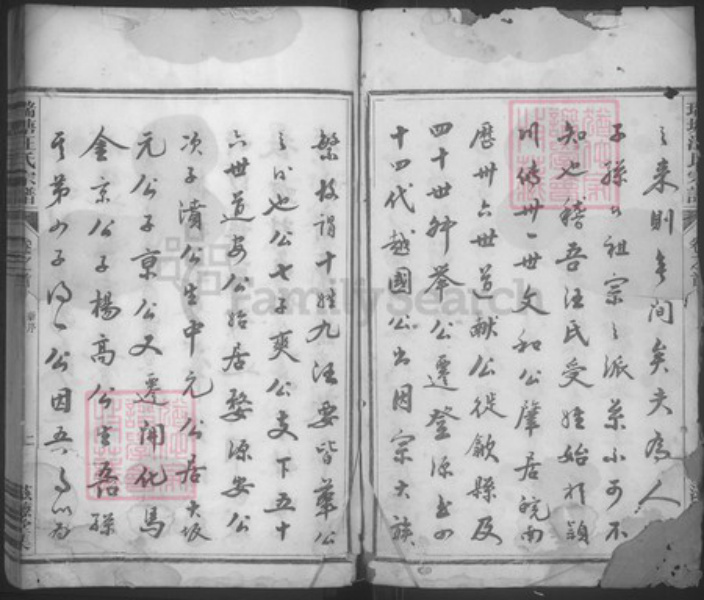 之来則無間矣夫為人
子孫於祖宗之派系不可不
知也稽吾汪氏受姓始於頴
川傳卅一世文和公肇居皖南
歷卅六世道献公従歙縣及
四十世舜举公遷登源
十四代越國公出因宗大族
繁故謂十姓九汪要皆華公
之公也公七子爽公支下五十
六世道安公始居婺源安公
次子濆公生中元公居大坂
元公子京公又遷開化馬
金京公子楊高公生五孫
其第子公因
瑞塘汪氏宗譜
FamilySearch